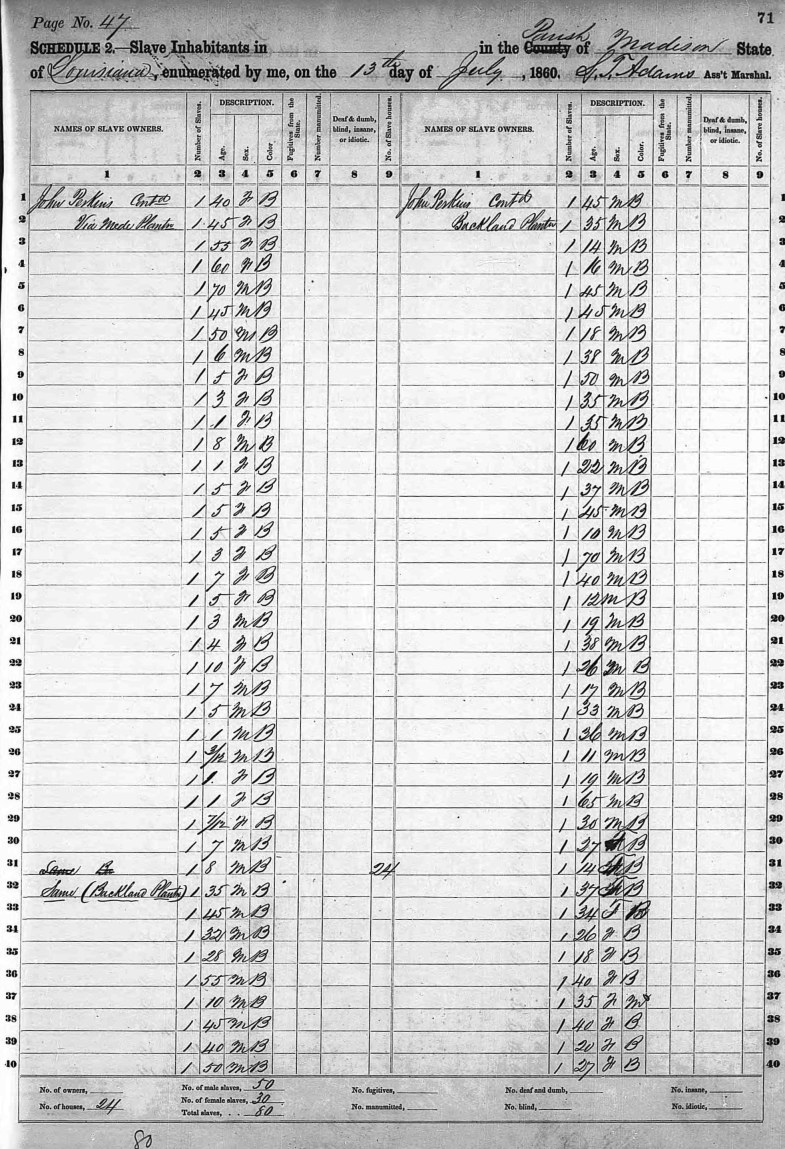 Page No. 47
71
SCHEDULE 2.—Slave Inhabitants in in the County Parish of Madison State
of Louisiana, enumerated by me, on the 13th day of July, 1860. S. T. Adams Ass't Marshal.
NAMES OF SLAVE OWNERS. Number of Slaves. DESCRIPTION. Age. Sex. Color. Fugitives from the State. Number manumitted. Deaf & dumb, blind, insane, or idiotic. No. of Slave houses. NAMES OF SLAVE OWNERS. Number of Slaves. DESCRIPTION. Age. Sex. Color. Fugitives from the State. Number manumitted. Deaf & dumb, blind, insane, or idiotic. No. of Slave houses.
1 2 3 4 5 6 7 8 9 1 2 3 4 5 6 7 8 9
1 John Perkins Contd 1 40 F B John Perkins Contd 1 45 M B 1
2 Via Mede Plantn 1 45 F B Buckland Plantn 1 35 M B 2
3 1 55 F B 1 14 M B 3
4 1 60 F B 1 16 M B 4
5 1 70 M B 1 45 M B 5
6 1 45 M B 1 45 M B 6
7 1 50 M B 1 18 M B 7
8 1 6 M B 1 38 M B 8
9 1 5 F B 1 50 M B 9
10 1 3 F B 1 35 M B 10
11 1 1 F B 1 35 M B 11
12 1 8 M B 1 60 M B 12
13 1 1 F B 1 22 M B 13
14 1 5 F B 1 37 M B 14
15 1 5 F B 1 45 M B 15
16 1 5 F B 1 10 M B 16
17 1 3 F B 1 70 M B 17
18 1 7 F B 1 40 M B 18
19 1 5 F B 1 12 M B 19
20 1 3 M B 1 19 M B 20
21 1 4 F B 1 38 M B 21
22 1 10 F B 1 26 M B 22
23 1 7 M B 1 17 M B 23
24 1 5 M B 1 33 M B 24
25 1 1 M B 1 36 M B 25
26 1 3/12 M B 1 11 M B 26
27 1 1 F B 1 19 M B 27
28 1 1 F B 1 65 M B 28
29 1 7/12 F B 1 30 M B 29
30 1 7 M B 1 27 B 30
31 Same Bu 1 8 M B 24 1 14 B 31
32 Same (Buckland Plantn) 1 35 M B 1 37 B 32
33 1 45 M B 1 34 F B 33
34 1 32 M B 1 26 F B 34
35 1 28 M B 1 18 F B 35
36 1 55 M B 1 40 F B 36
37 1 10 M B 1 35 F M 37
38 1 45 M B 1 40 F B 38
39 1 40 M B 1 20 F B 39
40 1 50 M B 1 27 F B 40
No. of owners, No. of male slaves, 50 No. fugitives, No. deaf and dumb, No. insane,
No. of houses, 24 No. of female slaves, 30 No. manumitted, No. blind, No. idiotic,
Total slaves, . . 80
80